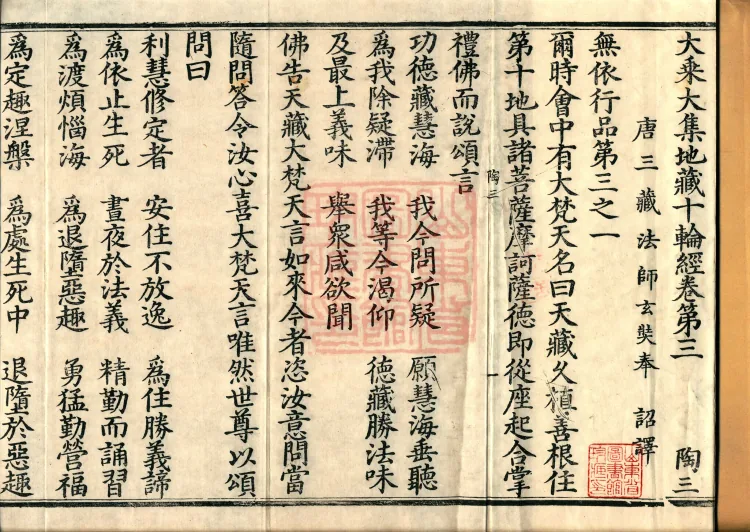 大乘大集地藏十輪經卷第三 陶三
唐三藏法師玄奘奉 詔譯
無依行品第三之一
爾時會中有大梵天名曰天藏久殖善根住
第十地具諸菩薩摩訶薩德即從座起合掌
陶三 一
禮佛而說頌言
功德藏慧海 我今問所疑 願慧海垂聽
為我除疑滯 我等今渴仰 德藏勝法味
及最上義味 舉眾咸欲聞
佛告天藏大梵天言如來今者恣汝意問當
隨問答令汝心喜大梵天言唯然世尊以頌
問曰
利慧修定者 安住不放逸 為住勝義諦
為依止生死 晝夜於法義 精勤而誦習
為渡煩惱海 為退墮惡趣 勇猛勤營福
為定趣涅槃 為處生死中 退墮於惡趣
山東省
圖書館